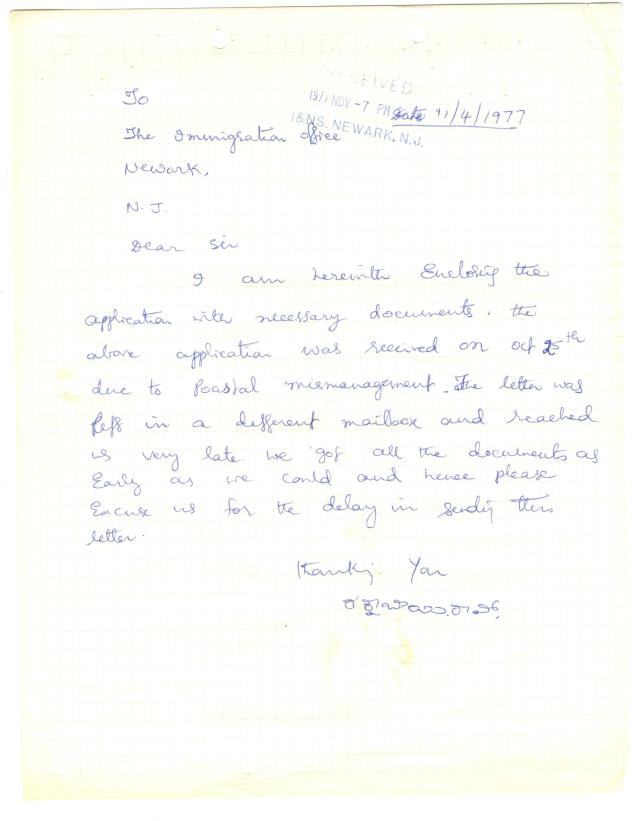 RECEIVED
1977 NOV -7 PM
Date 11/4/1977
I&NS. NEWARK, N.J.
To
The Immigration office
Newark,
N. J.
Dear Sir
I am herewith Enclosing the
application with necessary documents. The
above application was received on oct 25th
due to Poastal mismanagement. The letter was
left in a different mailbox and reached
us very late. we got all the documents as
Early as we could and hence please
Excuse us for the delay in sendig this
letter.
Thanking You